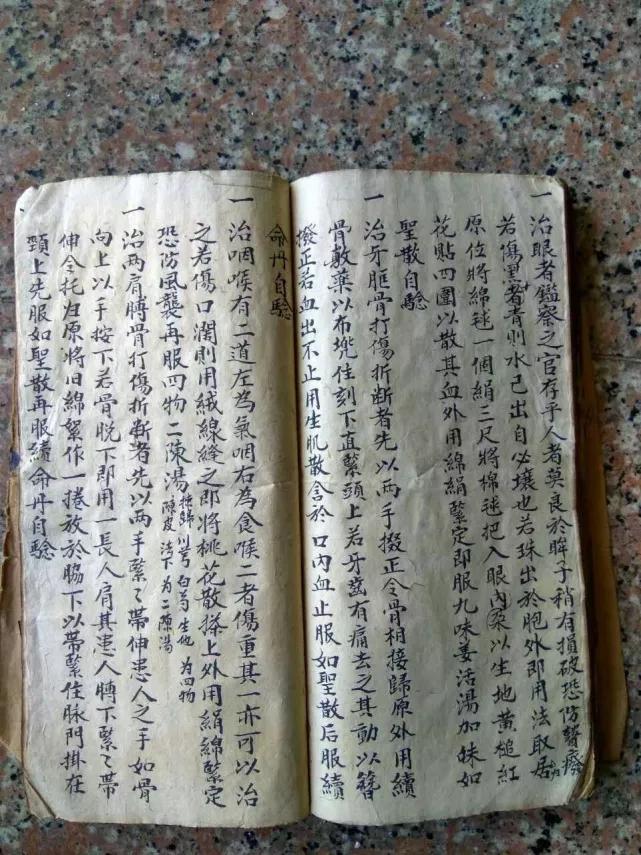 一治眼者鑑察之官存乎人者莫良於眸子稍有損破恐防瞽癈
若傷黑者青則水已出自必壊也若珠出於胞外即用法取居
原位將綿毬一個絹三尺將棉毬把入眼內以生地黄槌紅
花貼四圍以散其血外用綿絹繫定即服九味姜活湯加妹如
聖散自騐
一治牙脏骨打傷折断者先以兩手掇正令骨相接歸原外用續
骨敷藥以布兠住刻下直繫頭上若牙齒有痛去之其動以簪
撥正若血出不止用生肌散含於口内血止服如聖散后服續
命丹自騐
一治咽喉有二道左為氣咽右為食喉二者傷重其一亦可以治
之若傷口濶則用絨線縫之即將桃花散搽上外用絹綿繫定
恐防風襲再服四物二陳湯 川芎白芍生地為四物 陳皮法下為二陳湯
一治两肩膊骨打傷折断者先以两手繫了帶伸患人之手如骨
向上以手按下若骨脱下即用一長人肩其患人膊下繫了帶
伸令托归原將旧綿絮作一捲放於脇下以帶繫住脉門掛在
頸上先服如聖散再服續命丹自騐